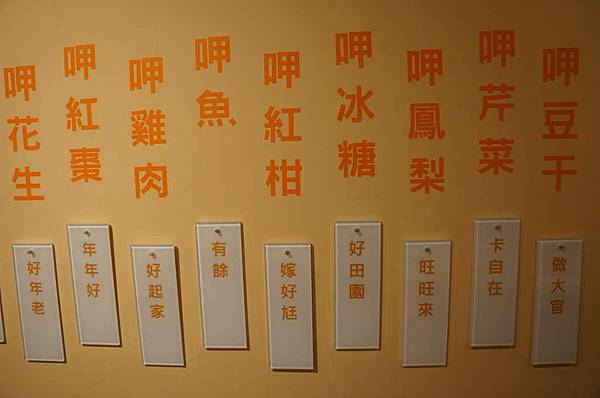 呷豆干
做大官
呷芹菜
卡自在
呷鳳梨
旺旺來
呷冰糖
好田園
呷紅柑
嫁好尪
呷魚
有餘
呷雞肉
好起家
呷紅棗
年年好
呷花生
好年老